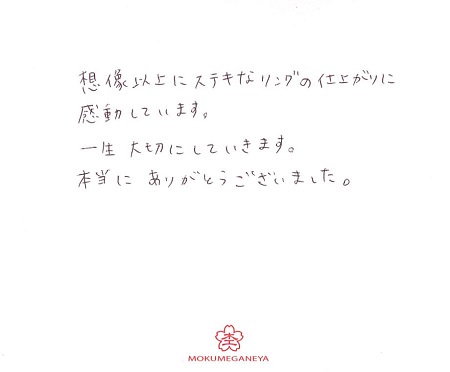 想像以上にステキなリングの仕上がりに
感動しています。
一生 大切にしていきます。
本当に ありがとうございました。
MOKUMEGANEYA